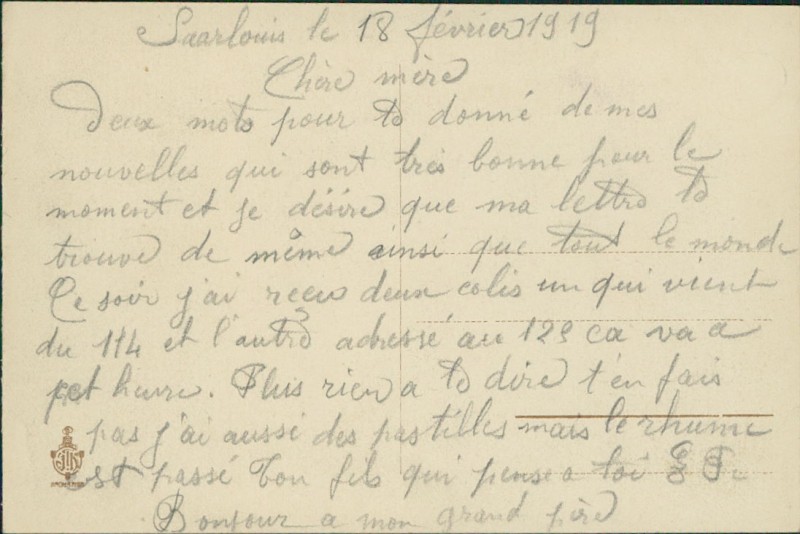 Saarlouis le 18 février 1919
Chère mère
Deux mots pour te donné de mes
nouvelles qui sont très bonne pour le
moment et je désire que ma lettre te
trouve de même ainsi que tout le monde
Ce soir j'ai reçu deux colis un qui vient
du 114 et l'autre adressé au 129 ca va a
heure. Plus rien a te dire t'en fais
pas j'ai aussi des pastilles mais le rhume
est passé Ton fils qui pense a toi
Bonjour a mon grand père